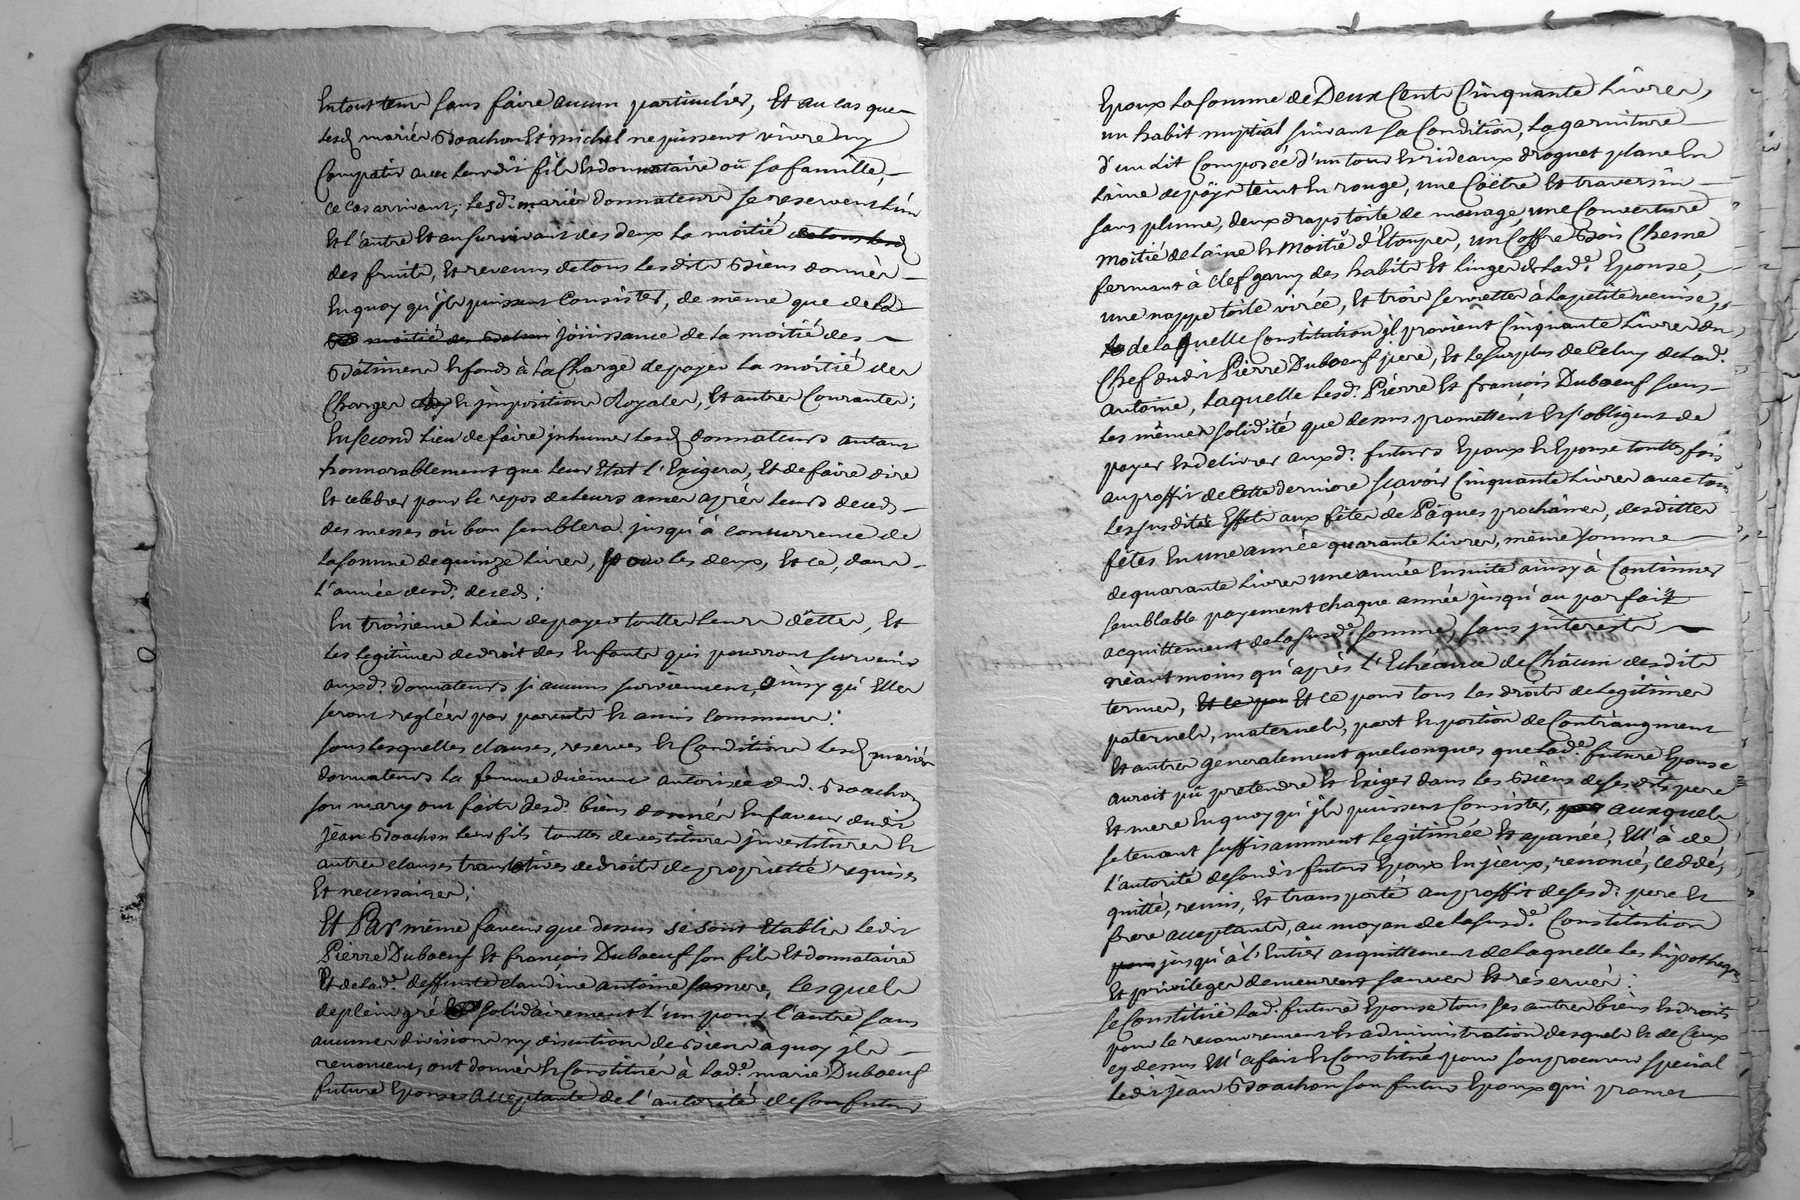 En tout tems sans faire aucun particulier, Et au cas que
lesd mariés Boachon Et michel ne pussent vivre ny
Compatir avec leurdit fils Et donnataire où sa famille,
ce cas arrivant, lesd. mariés donnateurs se reservent L'un
Et L'autre Et au survivant des deux La moitié de tous lesd
des fruits, Et revenus de tous lesdits Biens donnés
En quoy qu'jls puissent Consister, de même que de la
moitié des Joüissance de la moitié des
Bâtiments Et fonds à la Charge de payer La moitié des
Charges Et jmpositions Royales, Et autres Courantes;
En second Lieu de faire jnhumer lesd donnateurs autant
honnorablement que leur Etat l'Exigera, Et de faire dire
Et celebrer pour le repos de Leurs ames après leurs deceds
des messes où bon semblera jusqu'à concurrence de
La somme de quinze Livres, pour les deux, Et ce, dans
L'année desd. deceds;
En troisieme Lieu de payer touttes leurs dêttes, Et
Les legitimes de droit des Enfants qui pourront survenir
auxd. donnateurs si aucuns surviennent, ainsy qu'Elles
seront reglées par parents Et amis Communs;
sous lesquelles clauses, reserves Et Conditions lesd mariés
donnateurs La femme düement autorisée dud. Boachon
son mary ont faits desd. biens donnés En faveur dudit
Jean Boachon leur fils touttes devestitures jnvestitures Et
autres clauses translatives de droits de proprietté requises
Et necessaires;
Et Par même faveur que dessus se sont Etablis ledit
Pierre Duboeuf Et françois Duboeuf son fils Et donnataire
Et de lad. deffunte claudine antoine sa mere, Lesquels
de plein gré solidairement L'un pour L'autre sans
aucune division ny discution de Biens a quoy jls
renoncent, ont donnés Et Constitués à lad.e marie Duboeuf
future Epouse acceptante de l'autorité de son futur
Epoux La somme de Deux Cents Cinquante Livres,
un habit nuptial suivant sa Condition, La garniture
d'un Lit Composée d'un tour Et rideaux droguet plane En
Laine de païs teint En rouge, une Coëtre Et traversin
sans plume, deux draps toile de menage, une Couverture
Moitié de Laine Et Moitié d'Etoupes, un Coffre Bois Chesne
fermant à Clef garny des habits Et Linges de lad.e Epouse,
une nappe toile virée, Et trois serviettes à la petite venise,
de laquelle Constitution jl provient Cinquante Livres du
Chef dudit Pierre Duboeuf pere, Et Le surplus de Celuy de lad.
antoine, Laquelle lesd. Pierre Et françois Duboeuf sous
les mêmes solidité que dessus promettent Et s'obligent de
payer Et delivrer auxd. futurs Epoux Et Epouse touttes fois
au proffit de Cette derniere sçavoir Cinquante Livres avec tous
Les susdits Effets aux fêtes de Pâques prochaines, desdittes
fêtes En une année quarante Livres, même somme
de quarante Livres une année Ensuite ainsy à Continuer
semblable payement chaque année jusqu'au parfait
acquittement de la susd.e somme, sans jnterests
néantmoins qu'après L'Echéance de Châcun desdits
termes, Et ce pour Et ce pour tous Les droits de Legitimes
paternels, maternels, part Et portion de
Et autres generalement quelconques que lad.e future Epouse
auroit pû pretendre Et Exiger dans Les Biens de sesdits pere
Et mere En quoy qu'jls puissent Consister, auxquels
se tenant suffisamment Legitimée Et apanée, Ell'à de
L'autorité de son dit futur Epoux renoncé, ceddé,
quitté, remis, Et transporté au proffit de sesd. pere Et
frere acceptants, au moyen de la susd.e Constitution
jusqu'à L'Entier acquittement de Laquelle Les hipotheques
Et privileges demeurent sauves Et réservés;
se Constitüë lad. future Epouse tous ses autres biens Et droits
pour le recouvrement Et administration desquels Et de Ceux
cy dessus Ell'a fait Et Constitué pour son procureur special
ledit Jean Boachon son futur Epoux qui promet